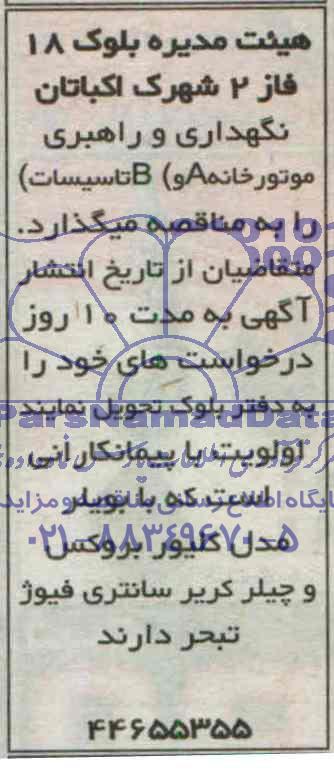 هیئت مدیره بلوک ۱۸
فاز ۲ شهرک اکباتان
نگهداری و راهبری
موتورخانهAو) Bتاسیسات)
را به مناقصه میگذارد.
متقاضیان از تاریخ انتشار
آگهی به مدت ۱۰ روز
درخواست های خود را
به دفتر بلوک تحویل نمایند
ParsNamadData
اولویت با پیمانکارانی
است که با بویلر
مدل کلیور بروکس
۰۲۱-۸۸۳۴۹۶۷۰-۵
و چیلر کریر سانتری فیوژ
تبحر دارند
۴۴۶۵۵۳۵۵